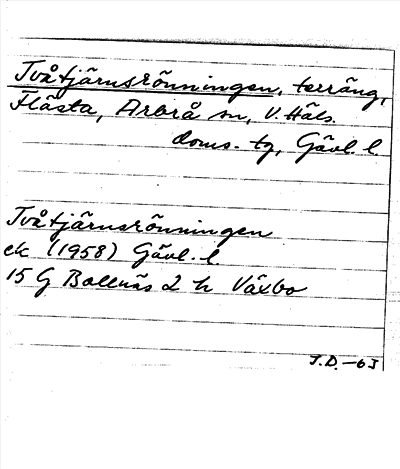 Tvåtjärnsrönningen, terräng,
Flästa, Arbrå sn, V. Häls.
doms. tg, Gävl. l.
Tvåtjärnsrönningen
ek (1958) Gävl. l.
15 G Bollnäs 2 h Växbo
J.D. -63